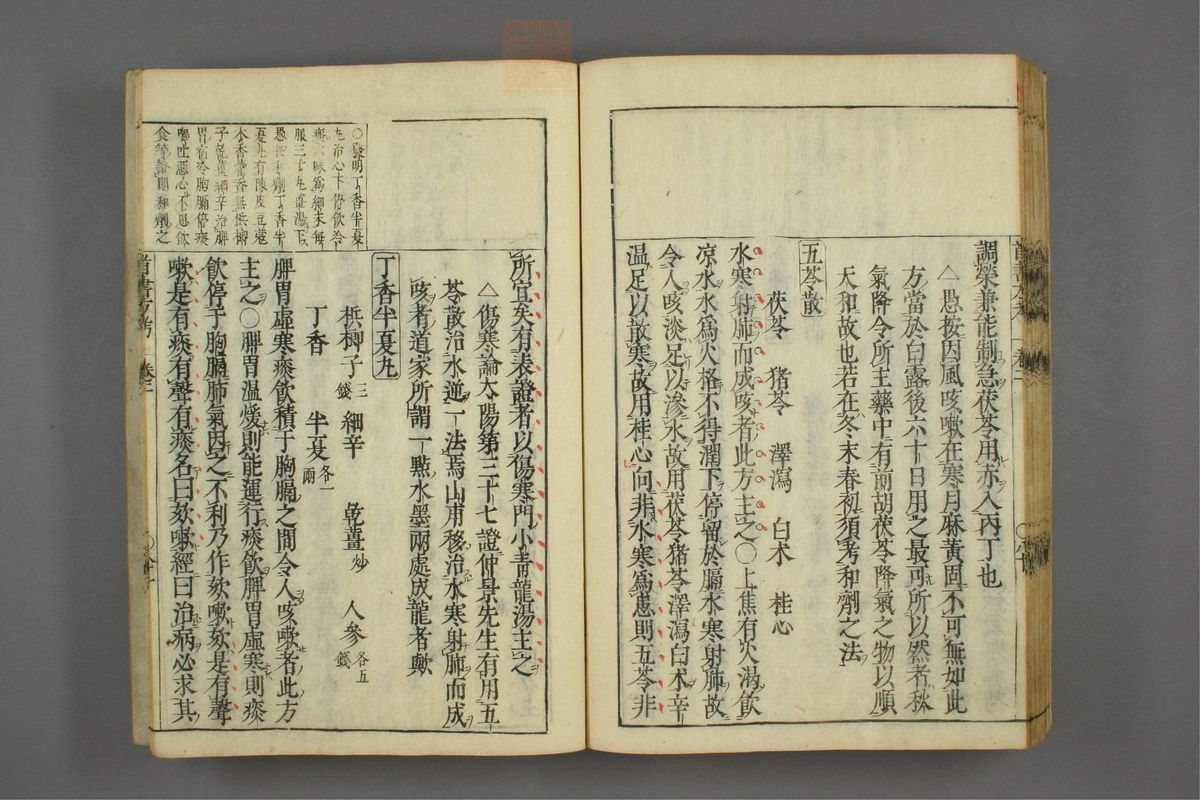 調榮兼能制急茯苓用赤入丙丁也
△愚按因風咳嗽在寒月麻黃固不可無如此
方當於白露後六十日用之最可所以然者秋
氣降令所主藥中有前胡茯苓降氣之物以順
天和故也若在冬末春初須考和劑之法
五苓散
茯苓 猪苓 澤瀉 白术 桂心
水寒射肺而成咳者此方主之○上焦有火渴飲
凉水水爲火格不得潤下停留於膈水寒射肺故
令人咳淡足以滲水故用茯苓猪苓澤瀉白术辛
温足以散寒故用桂心向非水寒爲患則五苓非
所宜矣有表證者以傷寒門小青龍湯主之
△傷寒論太陽第三十七證仲景先生有用五
苓散治水逆一法焉山甫移治水寒射肺而成
咳者道家所謂一點水墨兩處成龍者歟
丁香半夏丸
梹榔子三錢 細辛 乾薑炒 人參各五錢
丁香 半夏各一兩
脾胃虛寒痰飲積于胸膈之間令人咳嗽者此方
主之○脾胃温煖則能運行痰飲脾胃虛寒則痰
飲停于胸膈肺氣因之不利乃作欬嗽欬是有聲
嗽是有痰有聲有痰名曰欬嗽經曰治病必求其
○發明丁香半夏
丸治心下停飲冷
痰六味爲細末每
服三十丸薑湯下
愚按和劑丁香半
夏丸有陳皮豆蔻
木香藿香無梹榔
子乾薑細辛治脾
胃宿冷胸膈停痰
嘔吐惡心不思飲
食等證則和劑之